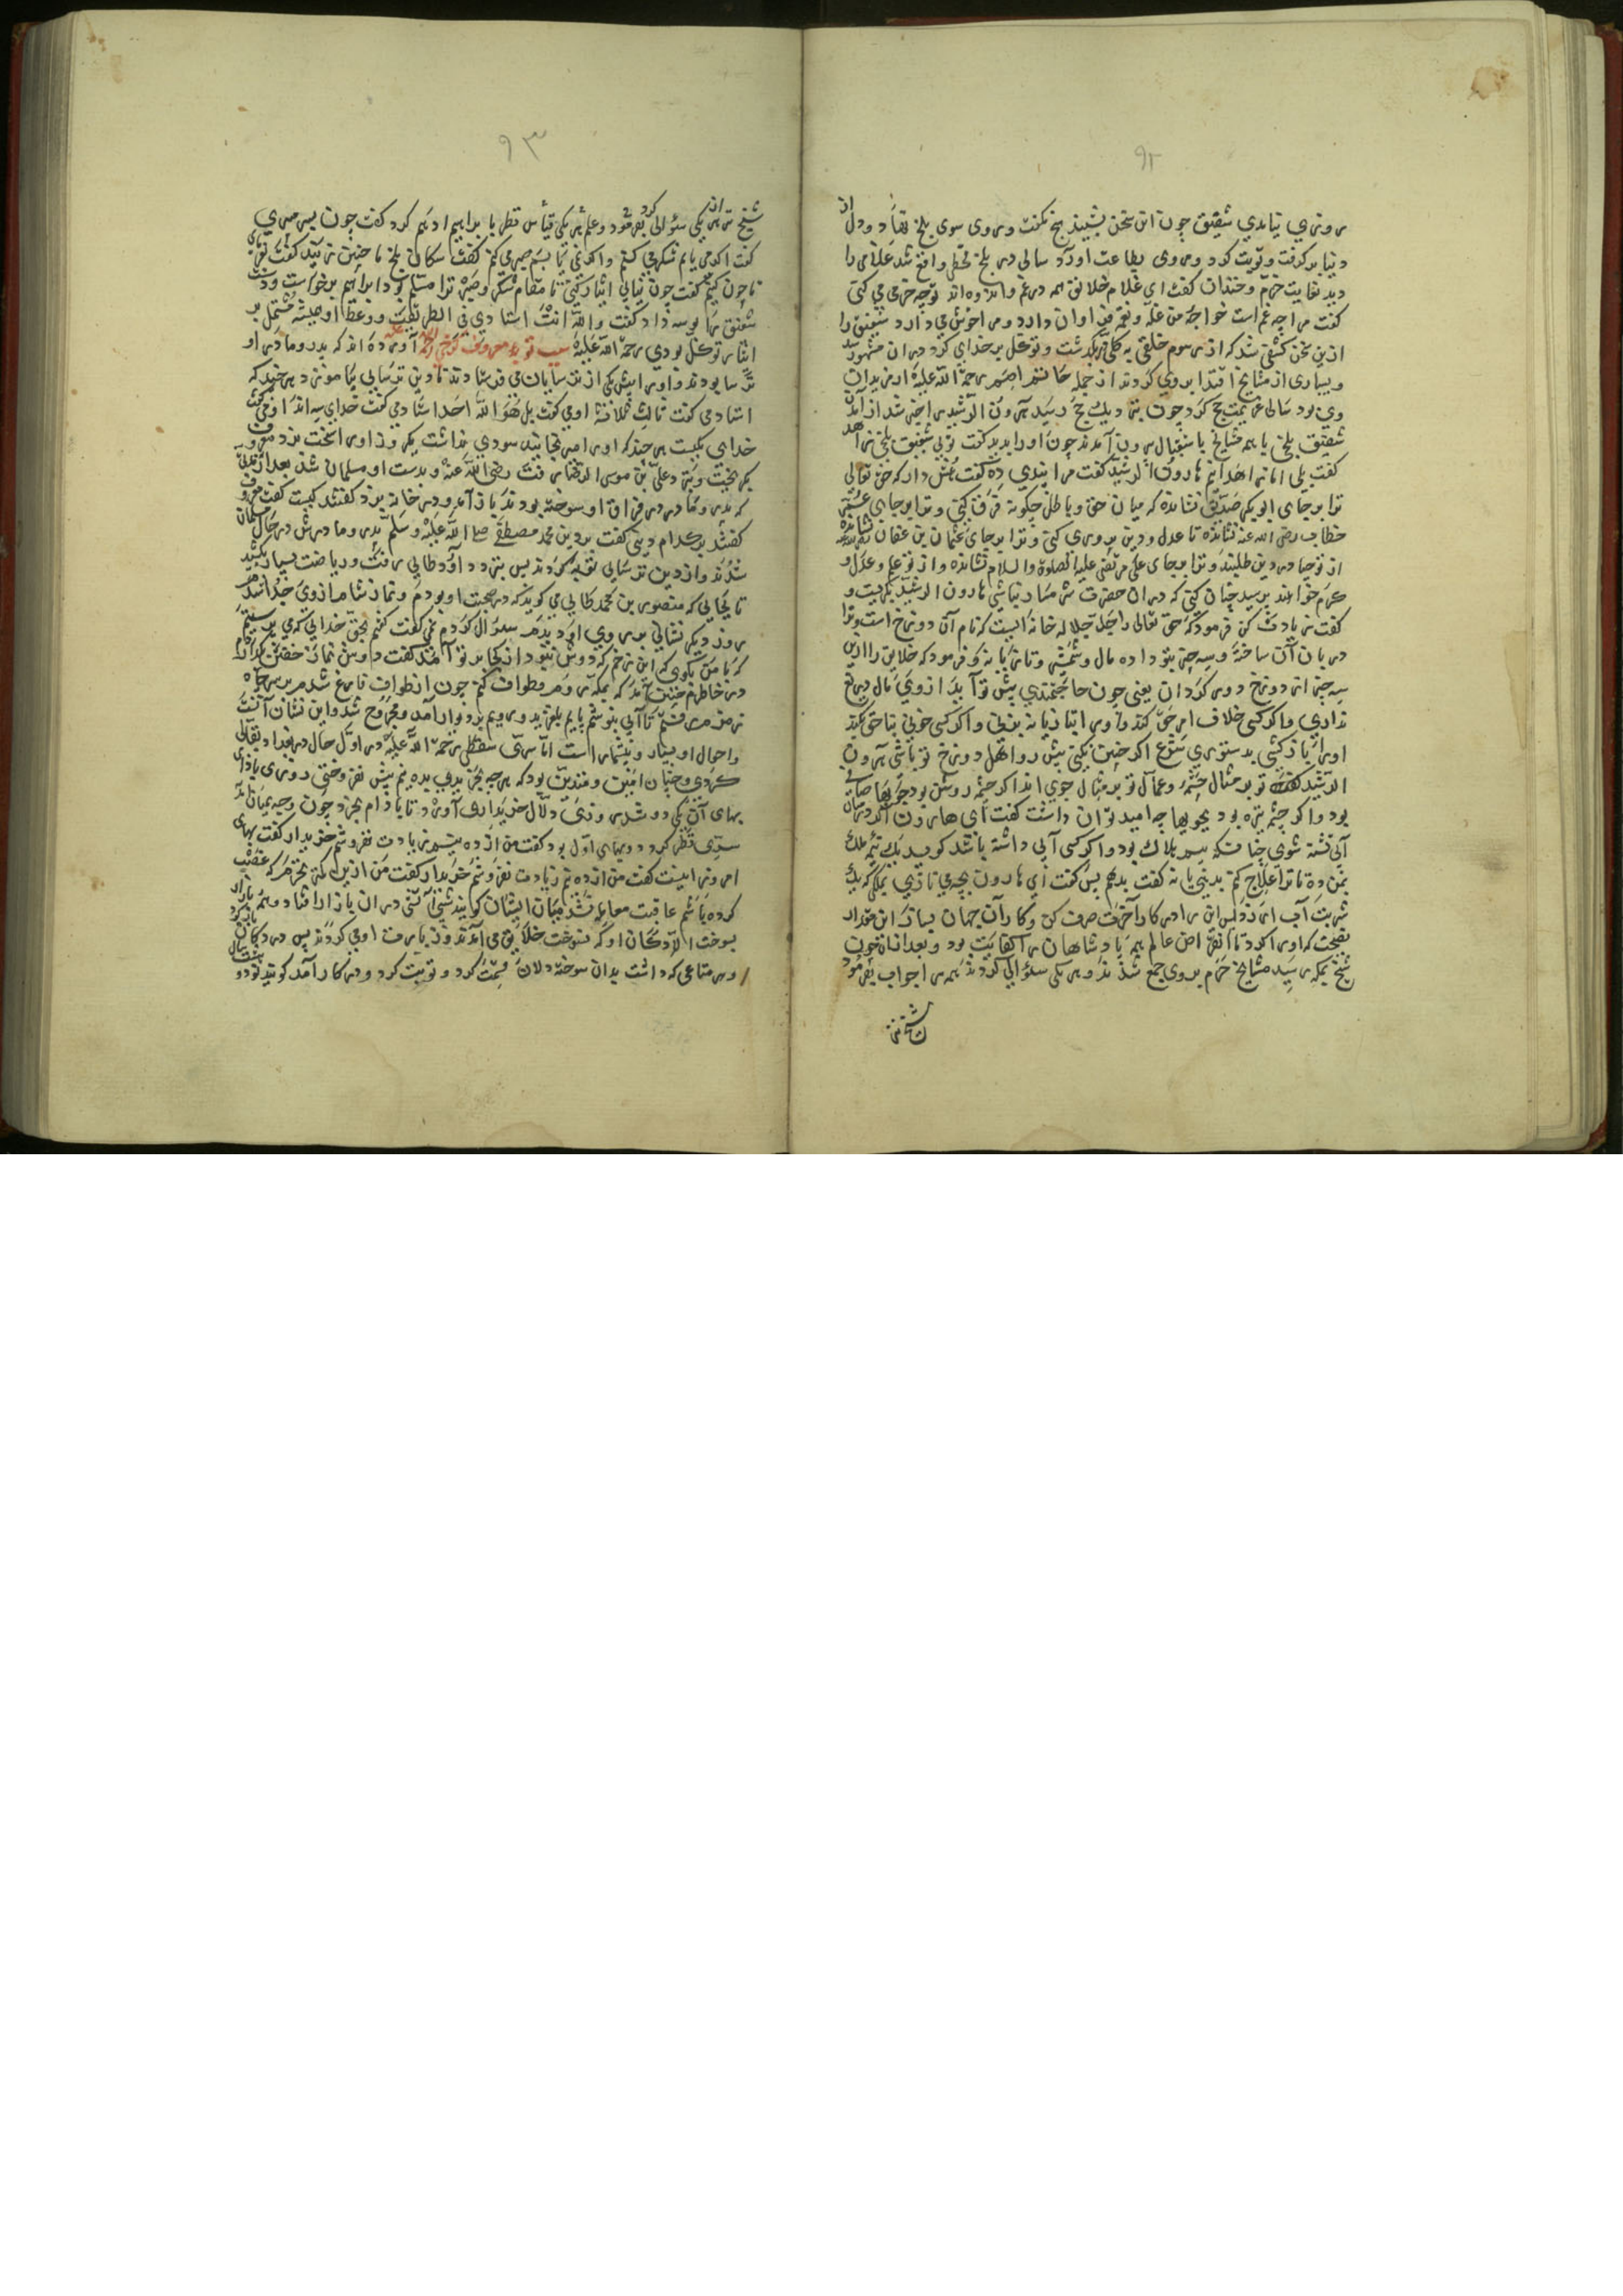 ۹۲
روزي نيامدي شقيق چون اين سخن بشنيد هيچ نكفت وروى سوى بلخ نهاد ودل از
دنيا بر كرفت وتوبت كرد وروى بطاعت آورد سالى در بلخ قحطى واقع شد غلامى را
ديد بغايت خرم وخندان كفت اى غلام خلايق همه در غم واندوه اند توچه خرمى مي كنى
كفت مرا چه غم است خواجه من غله ونعمة فراوان دارد ومرا خوش مي دارد شقيق را
ازين سخن كشفى شد كه از رسوم خلقى به كلى بكذشت وتوكل بر خداى كرد ودران مشهور شد
وبسيارى از مشايخ اقتدا بروى كردند از جمله حاتم اصم رحمة الله عليه از مريدان
وى بود سالى عزيمت حج كرد چون نزديك رسيد هرون الرشيد را خبر شد از آمدن
شقيق بلخى با همه مشايخ باستقبال بيرون آمدند چون اورا بديد كفت توئى شقيق بلخى زاهد
كفت بلى اما زاهد نيم هارون الرشيد كفت مرا پندى ده كفت هش دار كه حق تعالى
ترا بر جاى ابو بكر صديق نشانده كه ميان حق وباطل چكونه فرق كنى وترا بر جاى عمر
خطاب رضى الله عنه نشانده تا عدل ودين پرورى كنى وترا بر جاى عثمان بن عفان نشانده
از تو حيا در دين طلبند وترا بر جاى على مرتضى عليه الصلوة والسلام نشانده واز تو علم وعدل و
كرم خواهند پرسيد چنان كنى كه در ان حضرت شرمسار نباشى هارون الرشيد بكريست و
كفت زيادت كن فرمود كه حق تعالى را جل جلاله خانه ايست كه نام آن دوزخ است وترا
دربان آن ساخته وسه چيز بتو داده مال وشمشير وتازيانه وفرمود كه خلايق را ازين
سه چيز از دوزخ دور كردان يعنى چون حاجتمندى پيش تو آيد از وى مال دريغ
ندارى واكر كسى خلاف امر حق كند اورا بتازيانه بزنى واكر كسى خونى بناحق بكند
اورا باز كشى بدستورى شرع اكر چنين نكنى پيش رو اهل دوزخ تو باشى هرون
الرشيد كفت تو بر مثال چشمه وعمال تو بر مثال جوى اند اكر چشمه روشن بود جويها صافى
بود واكر چشم تيره بود بجويها چه اميد توان داشت كفت اى هارون اكر در بيابان
آبى تشنه شوى چنانكه بيم هلاك بود واكر كسى آبى داشته باشد كويد يك نيمه ملك
بمن ده تا ترا علاج كنم بدهى يا نه كفت بدهم پس كفت اى هارون بچه مي نازى بملكى كه يك
شربت آب ارزد پس اين را در كار آخرت صرف كن وكار آن جهان بساز اين مقدار
نصيحت كه اورا كرد تا انقراض عالم همه پادشاهان را كفايت بود وبعد از ان چون
شيخ بمكه رسيد مشايخ حرم بروى جمع شدند وهر يكى سئوالى كردند همه را جواب بفرمود
۹۳
شيخ از هر يكى سئوالى بفرمود وعلم هر يكى قياس كرد نظر با براهيم ادهم كرد كفت چون بسر مي برى
كفت اكر مي يابم شكر مي كنم واكر نمي يابم صبر مي كنم كفت سكان بلخ نا چنين زيند كفت تو بكوى
تا چون كنيم كفت چون بيابى ايثار كنى تا مقام شكر وصبر ترا مسلم بود ابراهيم بر خواست ودست
شقيق را بوسه داد كفت والله انت استادى في الطريقت ووعظ او هميشه مشتمل بر
ايثار توكل بودى رحمة الله عليه سبب توبه معروف كرخى آورده اند كه پدر ومادر او
ترسا بودند واورا پيش يكى از ترسايان مي فرستادند تا دين ترسايى بياموزد هر چند كه
استاد مي كفت ثالث ثلاثة او مي كفت بل هو الله احد استاد مي كفت خداى سه اند او مي كفت
خداى يكيست هر چند كه اورا مي رنجانيد سودى نداشت يكروز اورا سخت بزد معروف
بكريخت ونزد على بن موسى الرضا رفت رضى الله عنه وبدست او مسلمان شد بعد از مدتى
كه پدر ومادر در فراق او سوخته بودند باز آمد ودر خانه بزد كفتند كيست كفت معروف
كفتند بر كدام دينى كفت بر دين محمد مصطفى صلى الله عليه وسلم پدر ومادرش در حال مسلمان
شدند واز دين ترسايى توبه كردند پس بنزد داود طايى رفت ورياضت بسيار كشيد
تا بجايى كه منصور بن محمد طايى مي كويد كه در صحبت او بودم ونماز شام از وى جدا شدم
روز ديكر نشانى بر روى او ديدم سئوال كردم كفت كفتم بحق خدايى كه مي پرستيم
كه با من بكوى كه اين زخم كه دوش نبود از كجا بر تو آمد كفت دوش نماز خفتن كذاردم
در خاطرم چنين آمد كه بمكه روم وطواف كنم چون از طواف فارغ شدم بر سر چاه
زمزم رفتم تا آبى بنوشم پايم بلغزيد ورويم بر ديوار آمد ومجروح شد واين نشان آنست
واحوال او بسيار وبيشمار است اما سرى سقطى رحمة الله عليه در اول حال در بغداد بقالى
كردى وچنان امين ومتدين بود كه هر چه بخريدى بده نيم بيش نفروختى روزى بادام
بهاى آن يكى دو شد روزى دلال خريدارى آورد تا بادام بخرد چون وجه بميان آمد
سرى نظر كرد دو بهاى اول بود كفت من از ده نيم زيادت نفروشم خريدار كفت بهاى
امروز اينست كفت من از ده نيم زيادت نفروشم خريدار كفت من ازين كمتر نخرم كه
كرده باشم عاقبت معامله نشد ميان ايشان كويند شبى آتش در ان بازار افتاد وهمه بازار
بسوخت الا دكان او كه نسوخت خلايق مي آمدند وزيارت او مي كردند پس در دكان باز كرد
وهر متاعى كه داشت بدان سوخته دلان قسمت كرد وتوبت كرد ودر كار آمد كويند نود و